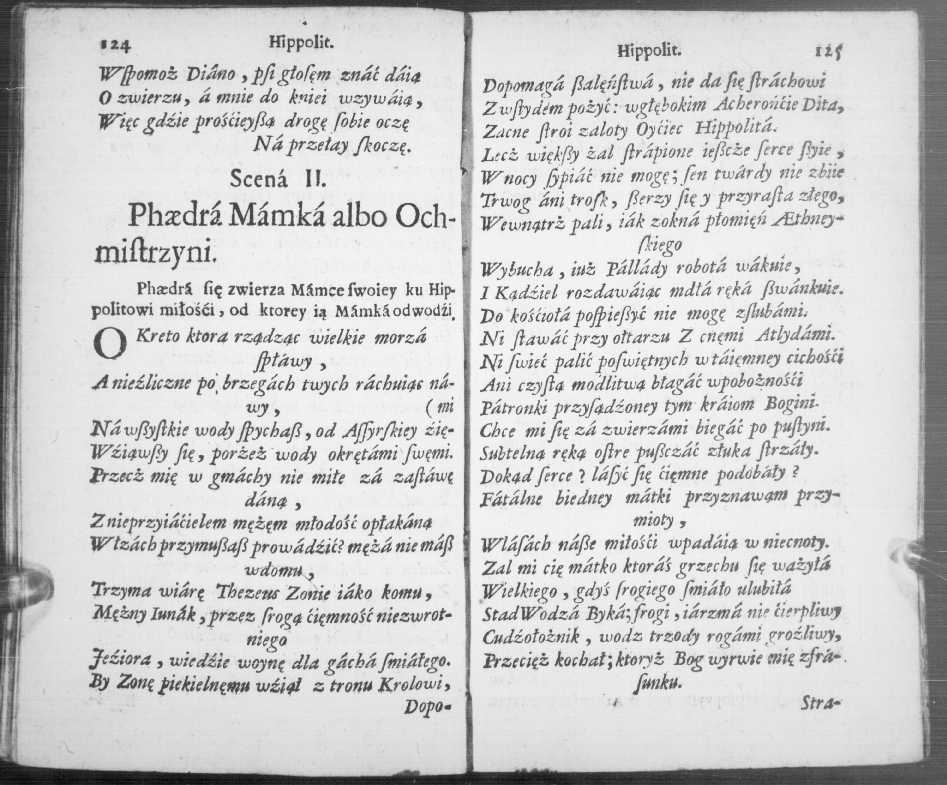 124 Hippolit.
Wſpomoż Diáno, pſi głoſęm znáć dáią
O zwierzu, á mnie do kniei wzywáią,
Więc gdźie prośćieyßą drogę ſobie oczę
Ná przełay ſkoczę.
Scená II.
Phædrá Mámká albo Och-
miſtrzyni.
Phædrá ſię zwierza Mámce ſwoiey ku Hip-
politowi miłośći, od ktorey ią Mámká odwodźi.
O Kreto ktora rządząc wielkie morzá
ſpławy,
A nieźliczne po brzegách twych ráchuiąc ná-
wy, (mi
Ná wßyſtkie wody ſpychaß, od Aſſyrſkiey źię-
Wźiąwßy ſię, porżeż wody okrętámi ſwęmi.
Przecż mię w gmáchy nie miłe zá zaſtáwę
dáną,
Z nieprzyiáćielem mężęm młodość opłakáną
W łzách przymußaß prowádźić? mężá nie máß
w domu,
Trzyma wiárę Thezeus Zonie iáko komu,
Mężny Iunák, przez ſrogą ćięmność niezwrot-
niego
Jeźiora, wiedźie woynę dla gáchá ſmiáłego.
By Zonę piekielnęmu wźiął z tronu Krolowi,
Dopo-
Hippolit. 125
Dopomagá ßalęńſtwá, nie da ſię ſtráchowi
Z wſtydem pożyć: w głębokim Acherońćie Dita,
Zacne ſtroi zaloty Oyćiec Hippolitá.
Lecż więkßy żal ſtrápione ieſzcże ſerce ßyie,
W nocy ſypiáć nie mogę; ſen twárdy nie zbiie
Trwog áni troſk, ßerzy ſię y przyraſta złego,
Wewnątrż pali, iák z okná płomięń Æthney-
ſkiego
Wybucha, iuż Pállády robotá wákuie,
I Kądźiel rozdawáiąc mdłá ręká ßwánkuie.
Do kośćiołá poſpießyć nie mogę z ſlubámi.
Ni ſtawáć przy ołtarzu Z cnęmi Athydámi.
Ni ſwieć palić poſwiętnych w táięmney cichośći
Ani czyſtą modlitwą błagáć w pobożnośći
Pátronki przyſądźoney tym kráiom Bogini.
Chce mi ſię zá zwierzámi biegáć po puſtyni.
Subtelną ręką oſtre pußczáć z łuka ſtrzáły.
Dokąd ſerce? láſyć ſię ćięmne podobáły?
Fátálne biedney mátki przyznawąm przy-
mioty,
W láſách náße miłośći wpadáią w niecnoty.
Zal mi cię mátko ktoráś grzechu ſię ważyłá
Wielkiego, gdyś ſrogiego ſmiáło ulubiłá
Stad Wodzá Byká; ſrogi, iárzmá nie ćierpliwy
Cudźołożnik, wodz trzody rogámi groźliwy,
Przećięż kochał; ktoryż Bog wyrwie mię z fra-
ſunku.
Stra-